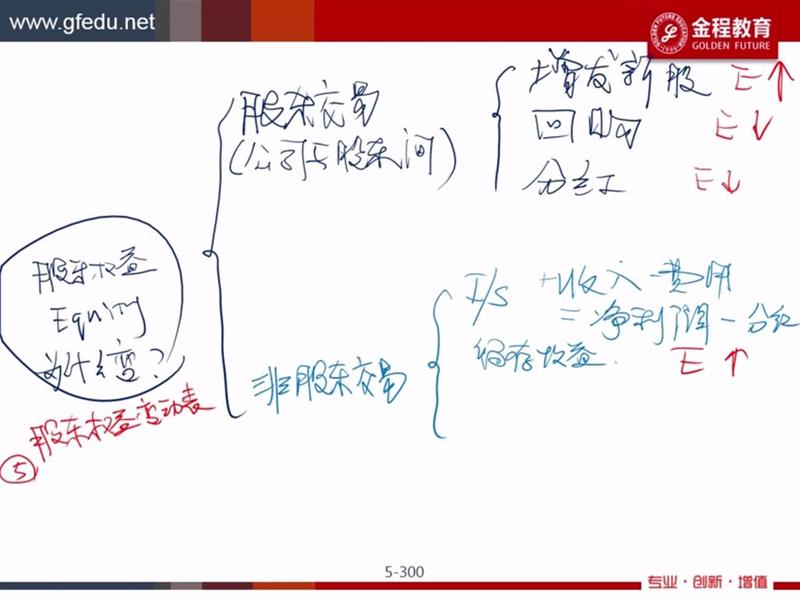 www.gfedu.net
金程教育
GOLDEN FUTURE
股东交易
(公司与股东间)
增发新股 E↑
回购 E↓
分红 E↓
股东权益
Equity
为什么变?
I/S +收入-费用
=净利润-分红
留存收益 E↑
非股东交易
⑤ 股东权益变动表
5-300
专业·创新·增值